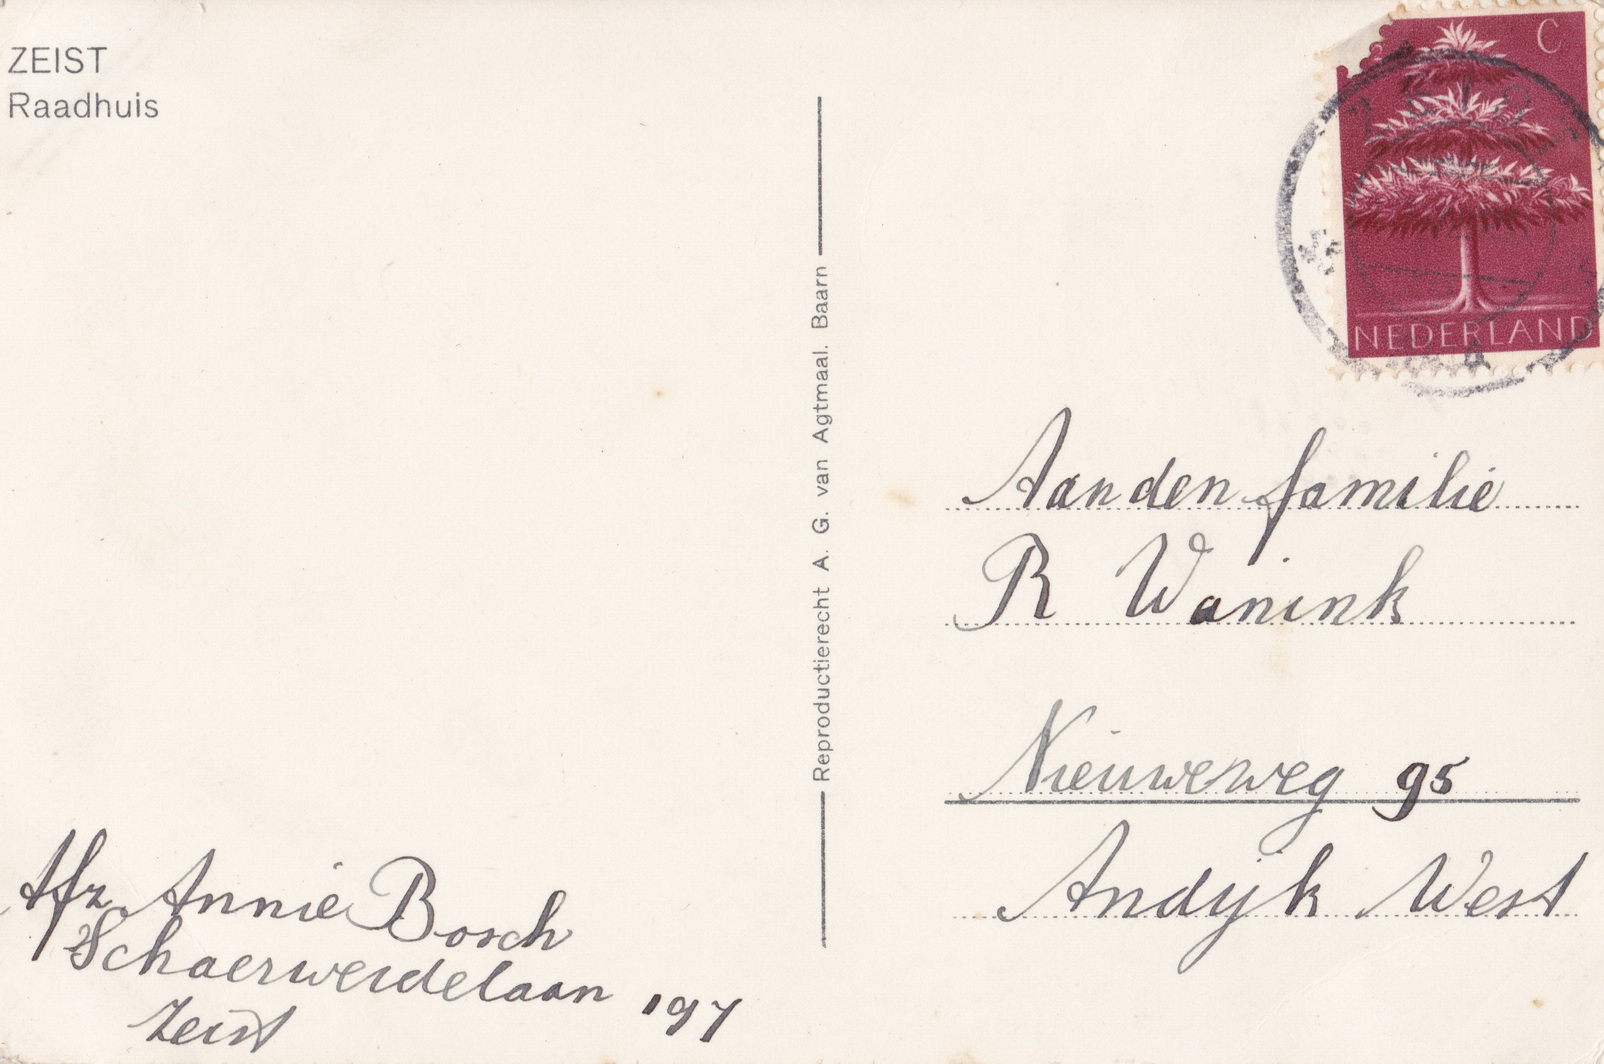 ZEIST
Raadhuis
Reproductierecht A. G. van Agtmaal. Baarn
C
NEDERLAND
Aan den familie
R Wanink
Nieuweweg 95
Andijk West
Afz Annie Bosch
Schaerweidelaan 197
Zeist